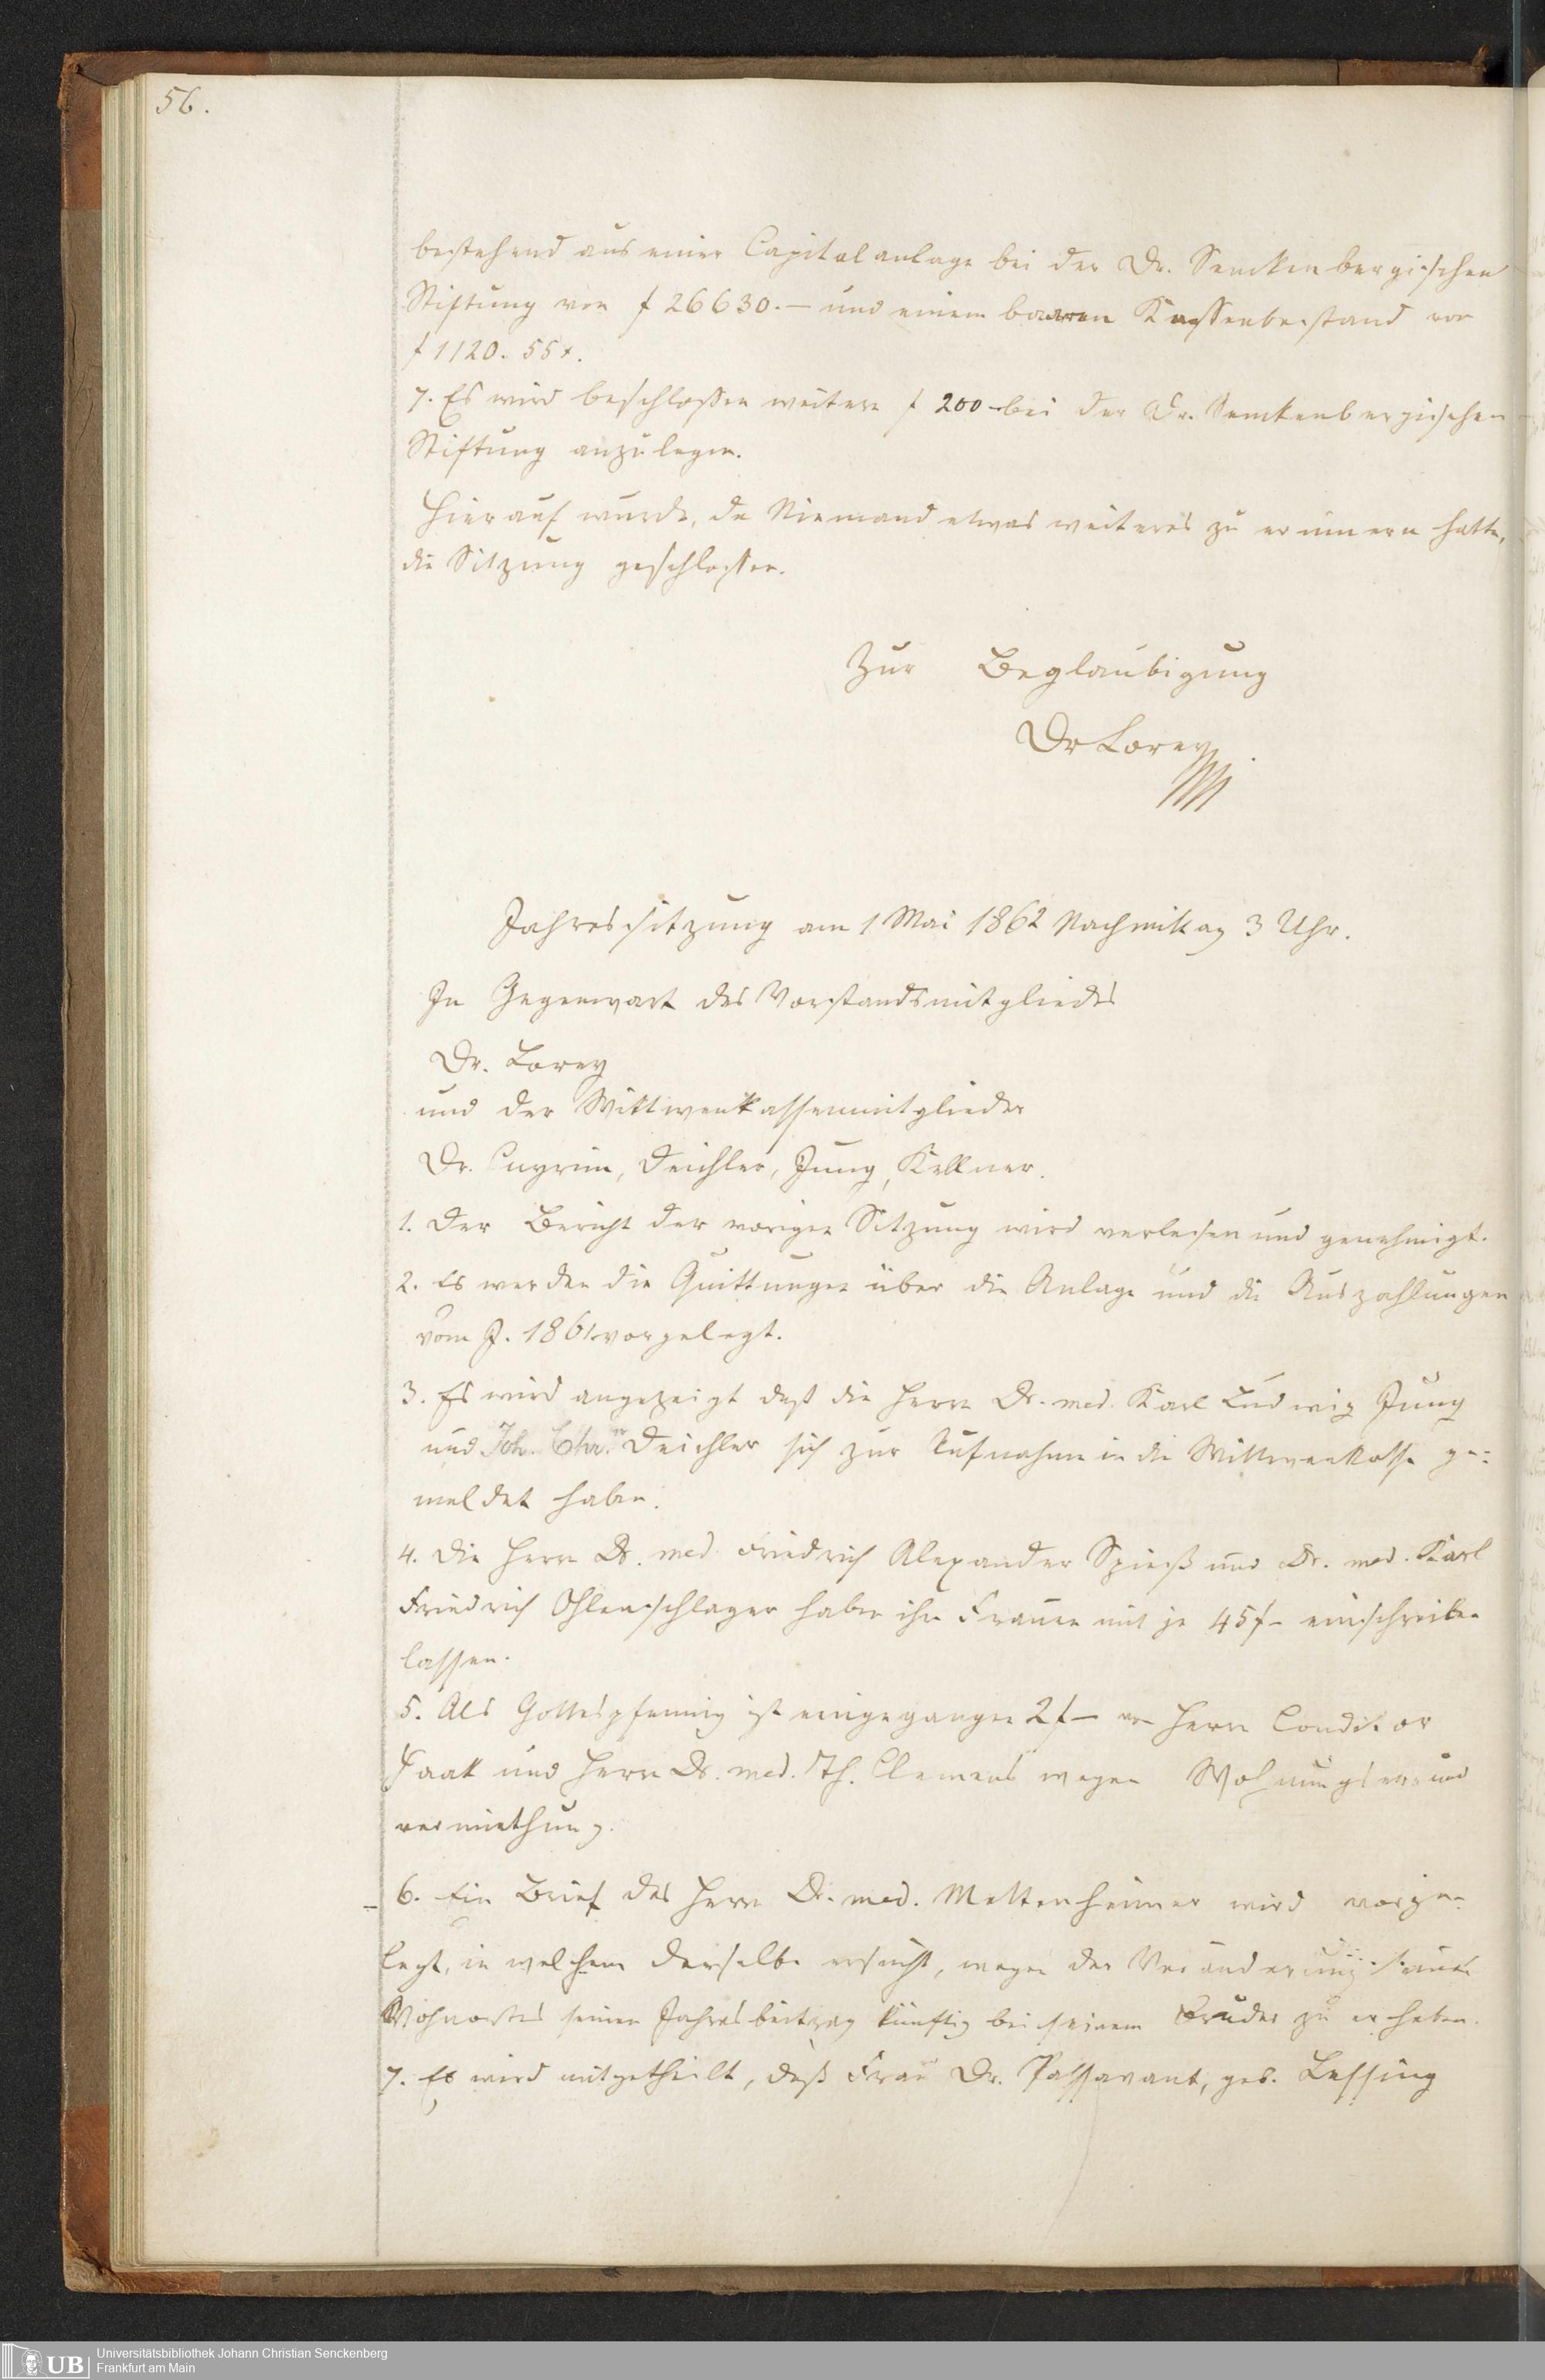 56.
bestehend aus einer Capitalanlage bei der Dr. Senckenbergischen
Stiftung von f 26630.— und einem baaren Kassenbestand von
f 1120. 55 x.
7. Es wird beschlossen weitere f 200 – bei der Dr. Senckenbergischen
Stiftung anzulegen.
Hierauf wurde, da Niemand etwas weiteres zu erinnern hatte,
die Sitzung geschlossen.
Zur Beglaubigung
Dr Lorey
Jahressitzung am 1 Mai 1862 Nachmittag 3 Uhr.
In Gegenwart des Vorstandsmitgliedes
Dr. Lorey
und der Wittwenkassenmitglieder
Dr. Cnyrim, Deichler, Jung, Kellner.
1. Der Bericht der vorigen Sitzung wird verlesen und genehmigt.
2. Es werden die Quittungen über die Anlage und die Auszahlungen
vom J. 1861 vorgelegt.
3. Es wird angezeigt daß die Herrn Dr. med. Karl Ludwig Jung
und Joh. Chr. Deichler sich zur Aufnahme in die Wittwenkasse ge-
meldet haben.
4. Die Herrn Dr. med. Friedrich Alexander Spieß und Dr. med. Karl
Friedrich Ohlenschlager haben ihre Frauen mit je 45 f – einschreiben
lassen.
5. Als Gottespfennig ist eingegangen 2 f – von Herrn Conditor
und Herrn Dr. med. Th. Clemens wegen Wohnungs
vermiethung.
6. Ein Brief des Herrn Dr. med. Mettenheimer wird vorge-
legt, in welchem derselbe ersucht, wegen der Veränderung seines
Wohnortes seinen Jahresbeitrag künftig bei seinem Bruder zu erheben.
7. Es wird mitgetheilt, daß Frau Dr. Passavant, geb. Lessing
UB
Universitätsbibliothek Johann Christian Senckenberg
Frankfurt am Main